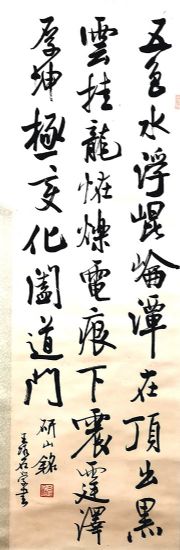 五色水浮崐崘潭在頂出黑
雲挂龍恠爍電痕下震霆澤
厚坤極變化闔道門
研山銘